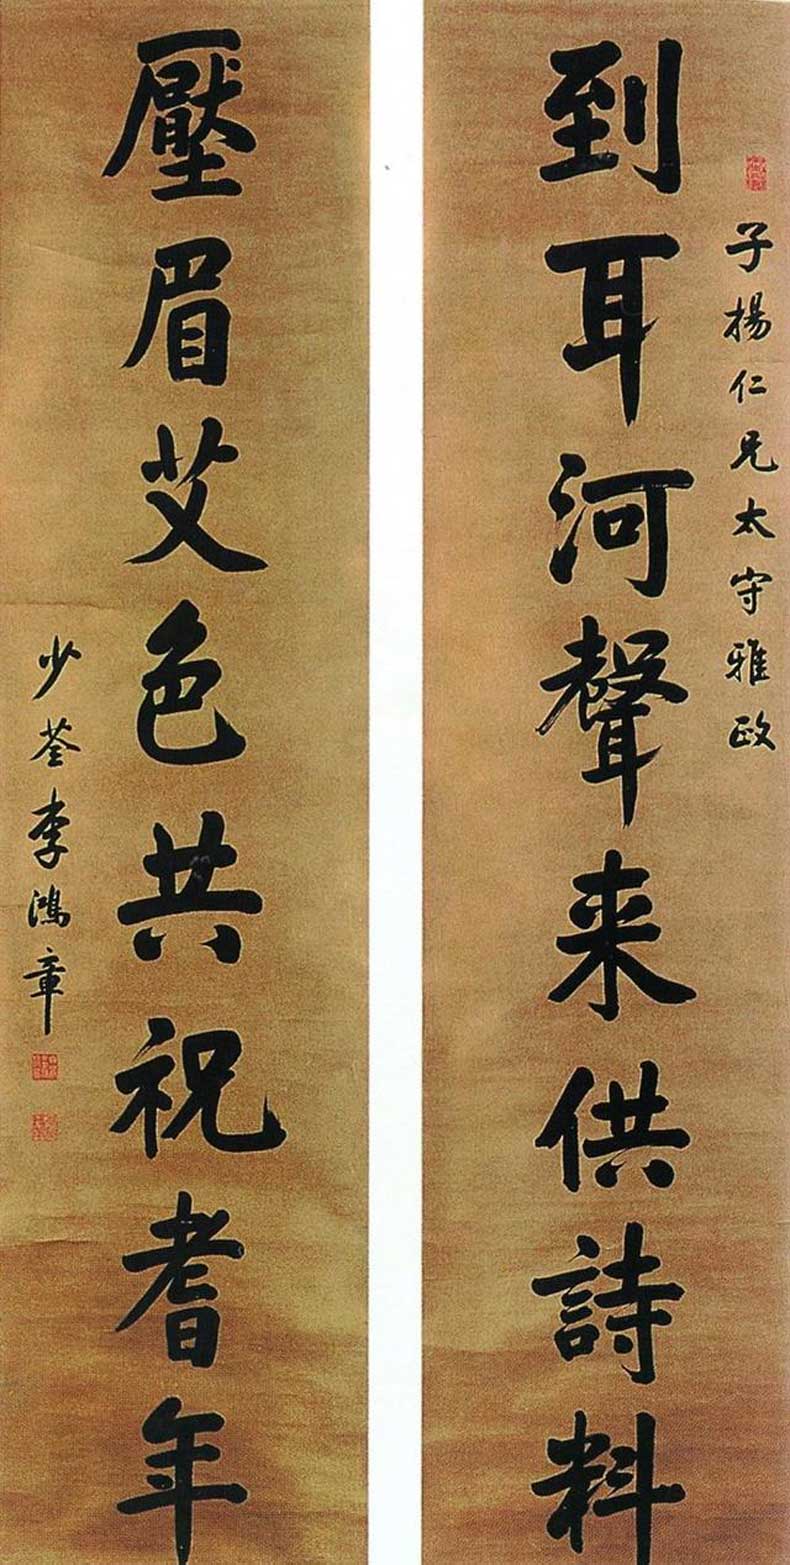 子揚仁兄太守雅政
到耳河聲来供詩料
壓眉艾色共祝耆年
少荃李鴻章